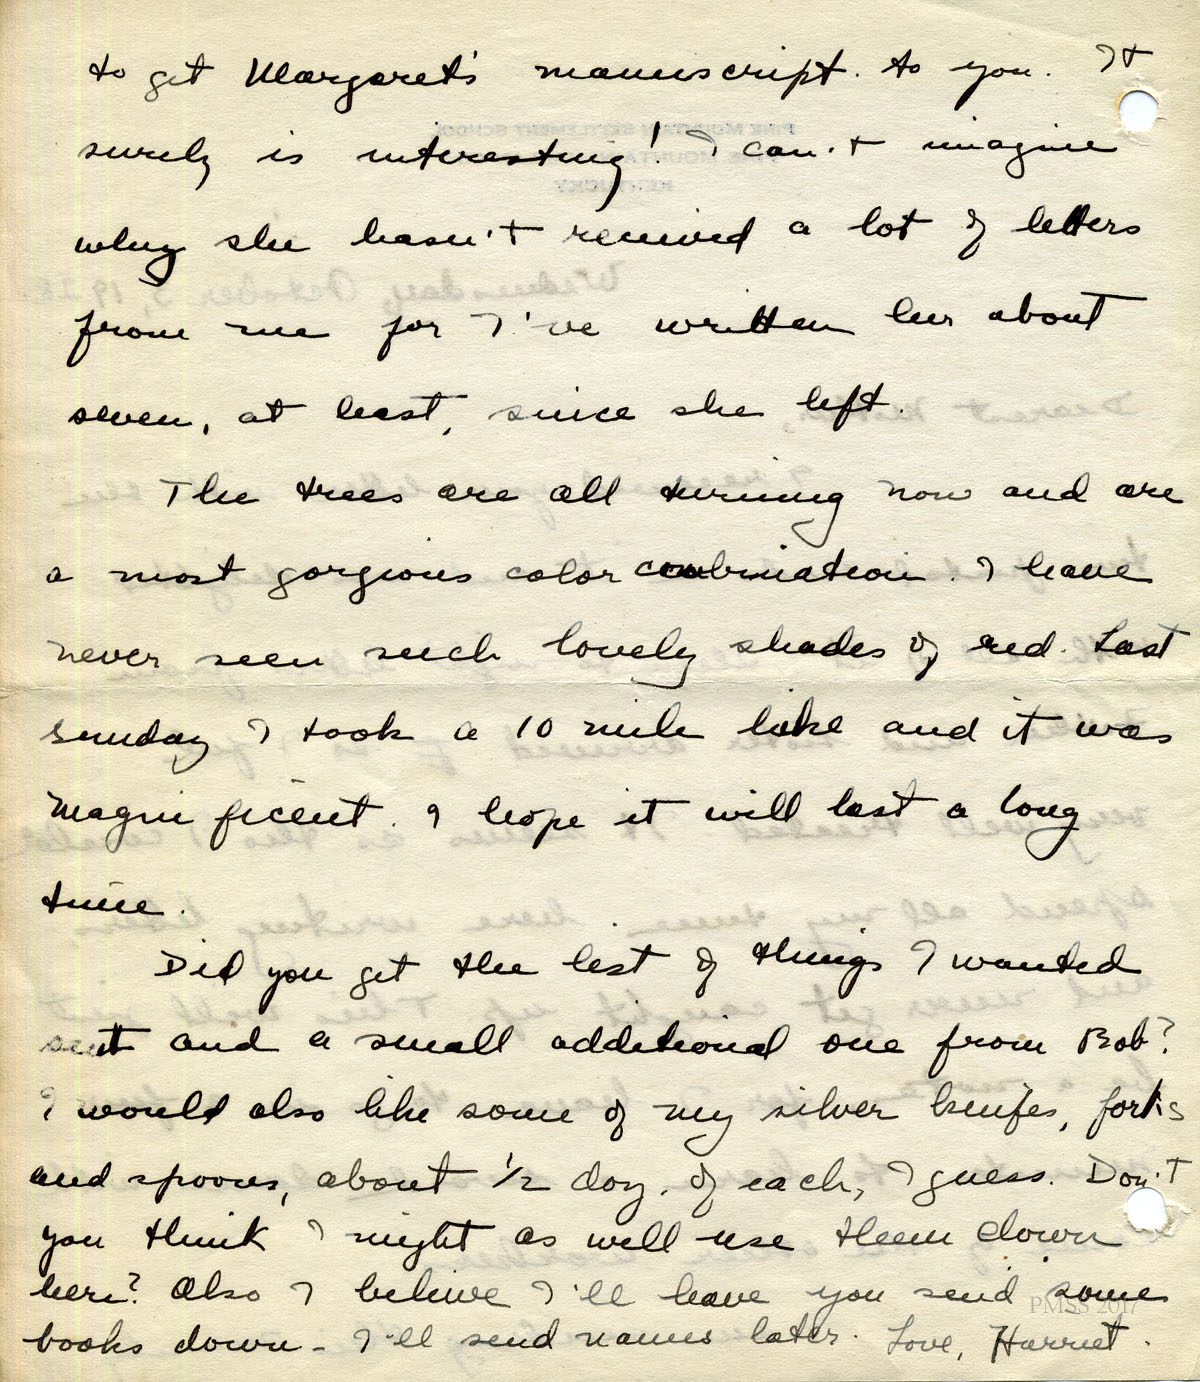 to get Margaret's manuscript. to you. It
surely is interesting! I can't imagine
why she hasn't received a lot of letters
from me for I've written her about
seven, at least, since she left.
The trees are all turning now and are
a most gorgious color combination. I have
never seen such lovely shades of red. Last
Sunday I took a 10 mile hike and it was
magnificent. I hope it will last a long
time.
Did you get the list of things I wanted
sent and a small additional one from Bob?
I would also like some of my silver knifes, forks
and spoons, about 1/2 doz. of each, I guess. Don't
you think I might as well use them down
here? Also I believe I'll have you send some
books down - I'll send names later. Love, Harriet.
PMSS 2017
PINE MOUNTAIN SETTLEMENT SCHOOL
PINE MOUNTAIN
KENTUCKY
Wednesday, October 3, 1928